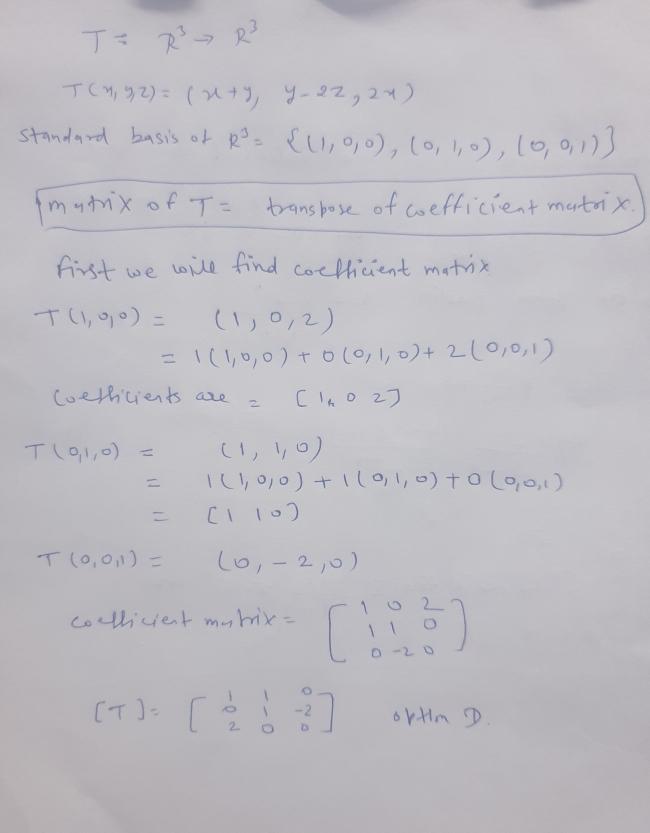 T = R³ → R³
T(x, y, z) = (x+y, y-2z, 2x)
Standard basis of R³ = {(1,0,0), (0,1,0), (0,0,1)}
matrix of T = transpose of coefficient matrix.
first we will find coefficient matrix
T(1,0,0) = (1, 0, 2)
= 1(1,0,0) + 0(0,1,0) + 2(0,0,1)
Coefficients are = [1, 0 2]
T(0,1,0) = (1, 1, 0)
= 1(1,0,0) + 1(0,1,0) + 0(0,0,1)
= [1 1 0]
T(0,0,1) = (0, -2, 0)
coefficient matrix = [1 0 2
1 1 0
0 -2 0]
[T] = [1 1 0
0 1 -2
2 0 0] option D.